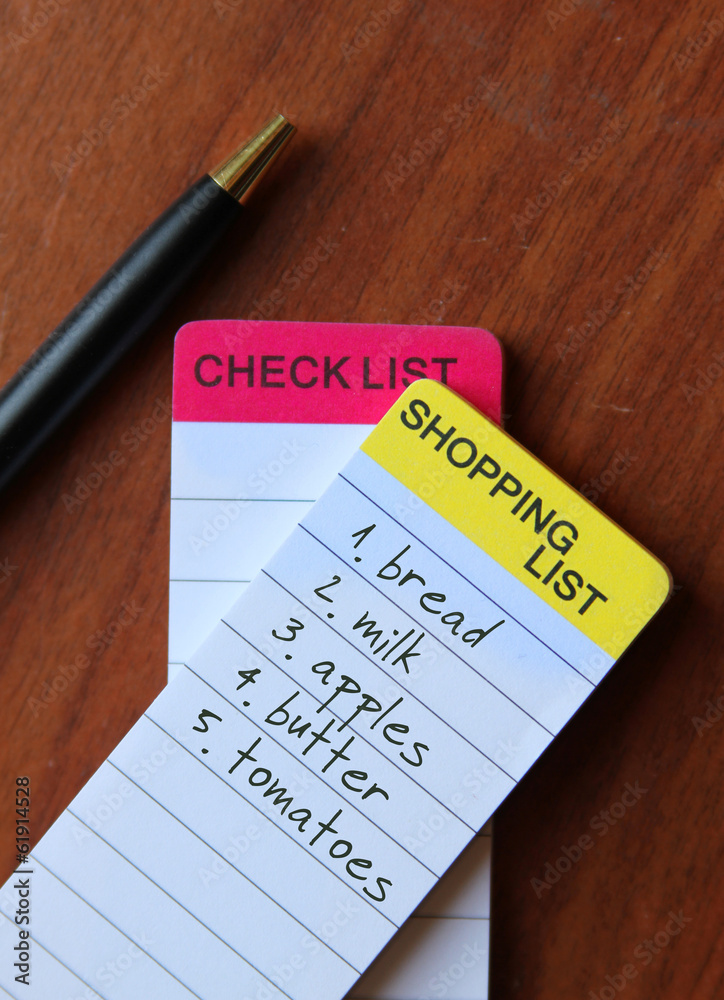 CHECK LIST
SHOPPING
LIST
1. bread
2. milk
3. apples
4. butter
5. tomatoes
Adobe Stock | #61914528